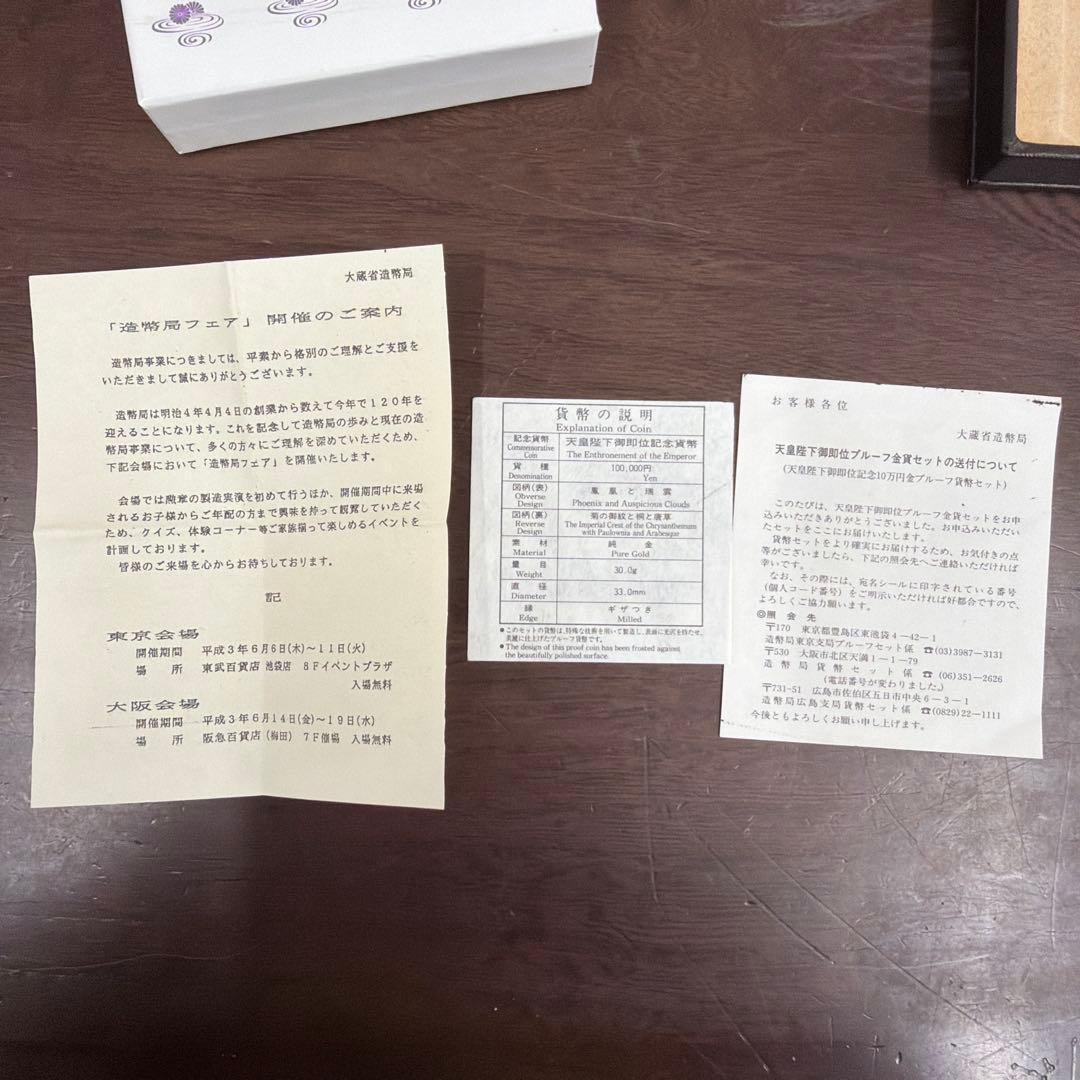 大蔵省造幣局
「造幣局フェア」開催のご案内
造幣局事業につきましては、平素から格別のご理解とご支援を
いただきまして誠にありがとうございます。
造幣局は明治4年4月4日の創業から数えて今年で120年を
迎えることになります。これを記念して造幣局の歩みと現在の造
幣局事業について、多くの方々にご理解を深めていただくため、
下記会場において「造幣局フェア」を開催いたします。
会場では勲章の製造実演を初めて行うほか、開催期間中に来場
されるお子様からご年配の方まで興味を持って観覧していただく
ため、クイズ、体験コーナー等ご家族揃って楽しめるイベントを
計画しております。
皆様のご来場を心からお待ちしております。
記
東京会場
開催期間 平成3年6月6日(木)~11日(火)
場所 東武百貨店 池袋店 8Fイベントプラザ
入場無料
大阪会場
開催期間 平成3年6月14日(金)~19日(水)
場所 阪急百貨店(梅田) 7F催場 入場無料
貨幣の説明
Explanation of Coin
記念貨幣 Commemorative Coin 天皇陛下御即位記念貨幣 The Enthronement of the Emperor
貨種 Denomination 100,000円 Yen
図柄(表) Obverse Design 鳳凰と瑞雲 Phoenix and Auspicious Clouds
図柄(裏) Reverse Design 菊の御紋と桐と唐草 The Imperial Crest of the Chrysanthemum with Paulownia and Arabesque
素材 Material 純金 Pure Gold
量目 Weight 30.0g
直径 Diameter 33.0mm
縁 Edge ギザつき Milled
●このセットの貨幣は、特殊な技術を用いて製造し、表面に光沢を持たせ、
美麗に仕上げたプルーフ貨幣です。
●The design of this proof coin has been frosted against
the beautifully polished surface.
お客様各位
大蔵省造幣局
天皇陛下御即位プルーフ金貨セットの送付について
(天皇陛下御即位記念10万円金プルーフ貨幣セット)
このたびは、天皇陛下御即位プルーフ金貨セットをお申
込みいただきありがとうございました。お申込みいただい
たセットをここにお届けいたします。
貨幣セットをより確実にお届けするため、お気付きの点
等がございましたら、下記の照会先へご連絡いただければ
幸いです。
なお、その際には、宛名シールに印字されている番号
(個人コード番号)をご明示いただければ好都合ですので、
よろしくご協力願います。
◎照会先
〒170 東京都豊島区東池袋4-42-1
造幣局東京支局プルーフセット係 ☎(03)3987-3131
〒530 大阪市北区天満1-1-79
造幣局貨幣セット係 ☎(06)351-2626
(電話番号が変わりました。)
〒731-51 広島市佐伯区五日市中央6-3-1
造幣局広島支局貨幣セット係 ☎(0829)22-1111
今後ともよろしくお願い申し上げます。